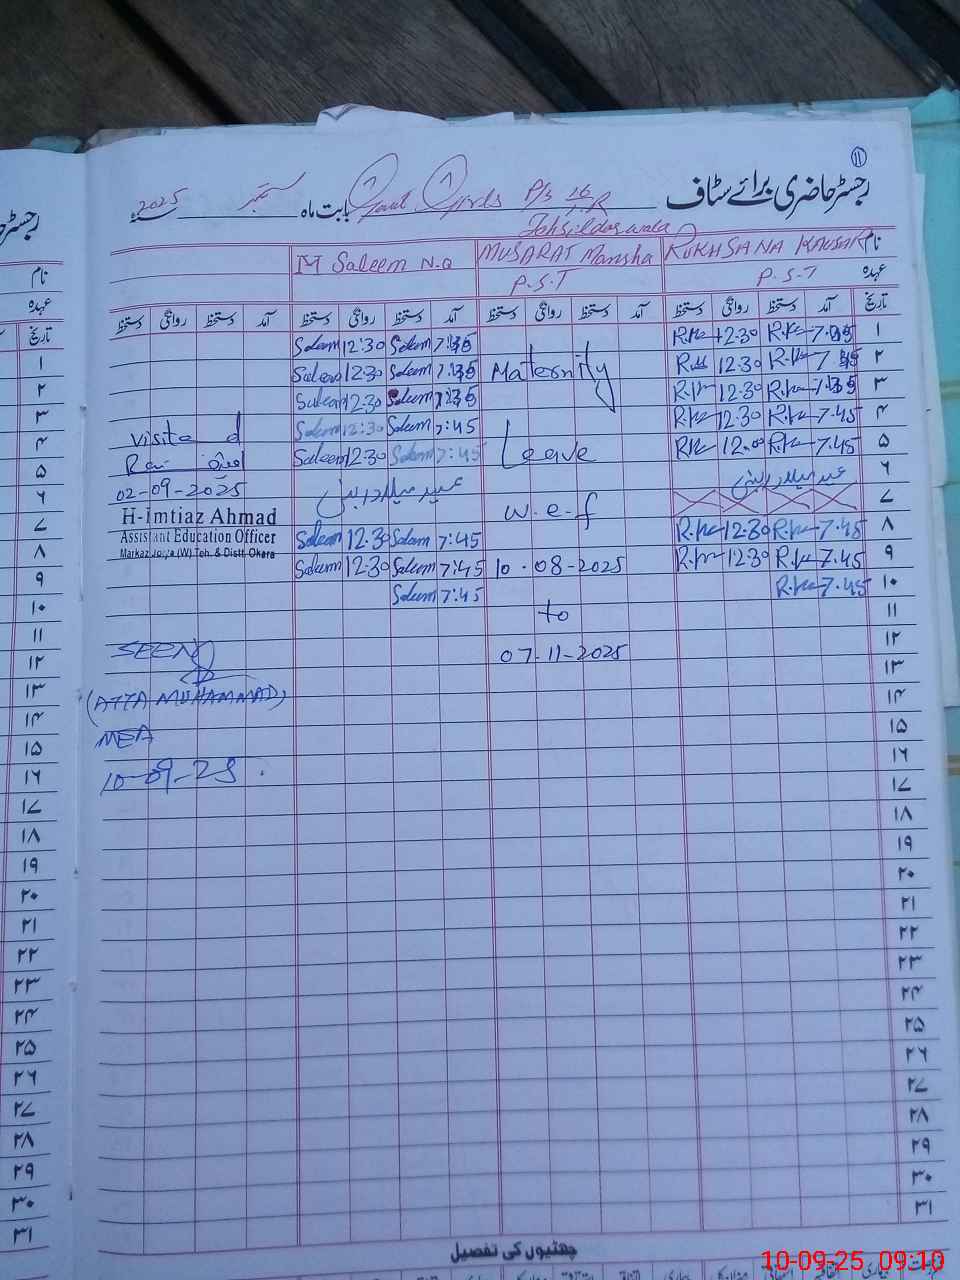 ۱۱
رجسٹر حاضری برائے سٹاف
Govt Girls P/S 16/1.R بابت ماہ ستمبر 2025
Tehsildar wala
نام RUKHSANA KAUSAR MUSARAT Mansha M Saleem N.Q
عہدہ P.S.T P.S.T
تاریخ آمد دستخط روانگی دستخط آمد دستخط روانگی دستخط آمد دستخط روانگی دستخط آمد دستخط روانگی دستخط
۱ R.K 12:30 R.K Saleem 12:30 Saleem
۲ R.K 12:30 R.K Saleem 12:30 Saleem
۳ R.K 12:30 R.K Saleem 12:30 Saleem
۴ 7.45 R.K 12:30 R.K 7:45 Saleem 12:30 Saleem
۵ 7.45 R.K R.K 7:45 Saleem 12:30 Saleem
۶ عید میلاد النبی عید میلاد النبی
۷
۸ 7.45 R.K 12:30 R.K 7:45 Saleem 12:30 Saleem
۹ 7.45 R.K 12:30 R.K 7:45 Saleem 12:30 Saleem
۱۰ 7.45 R.K 7:45 Saleem
۱۱
۱۲
۱۳
۱۴
۱۵
۱۶
۱۷
۱۸
۱۹
۲۰
۲۱
۲۲
۲۳
۲۴
۲۵
۲۶
۲۷
۲۸
۲۹
۳۰
۳۱
Maternity
Leave
w.e.f
10-08-2025
to
07-11-2025
Visited
02-09-2025
H-Imtiaz Ahmad
Assistant Education Officer
Markaz (W) Teh. & Distt. Okara
SEEN
(ATTA MUHAMMAD)
MEA
10-09-25.
چھٹیوں کی تفصیل
نام
عہدہ
تاریخ
۱
۲
۳
۴
۵
۶
۷
۸
۹
۱۰
۱۱
۱۲
۱۳
۱۴
۱۵
۱۶
۱۷
۱۸
۱۹
۲۰
۲۱
۲۲
۲۳
۲۴
۲۵
۲۶
۲۷
۲۸
۲۹
۳۰
۳۱
10-09-25 09:10